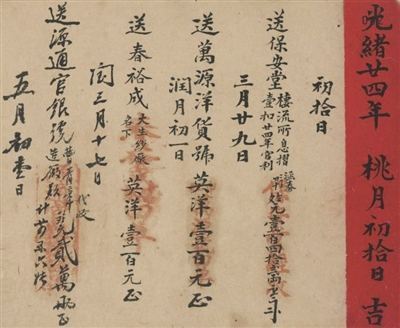 光緒廿四年 桃月初拾日 吉
初拾日
送保安堂 棲流所息摺 壹扣廿四年官利 元壹百四拾
三月廿九日
送萬源洋貨號英洋壹百元正
潤月初一日
送春裕成 大生紗廠名下 英洋壹百元正
閏三月十七日
送源通官銀號 曹 造廠款 貳萬 正 代收 計
五月初壹日